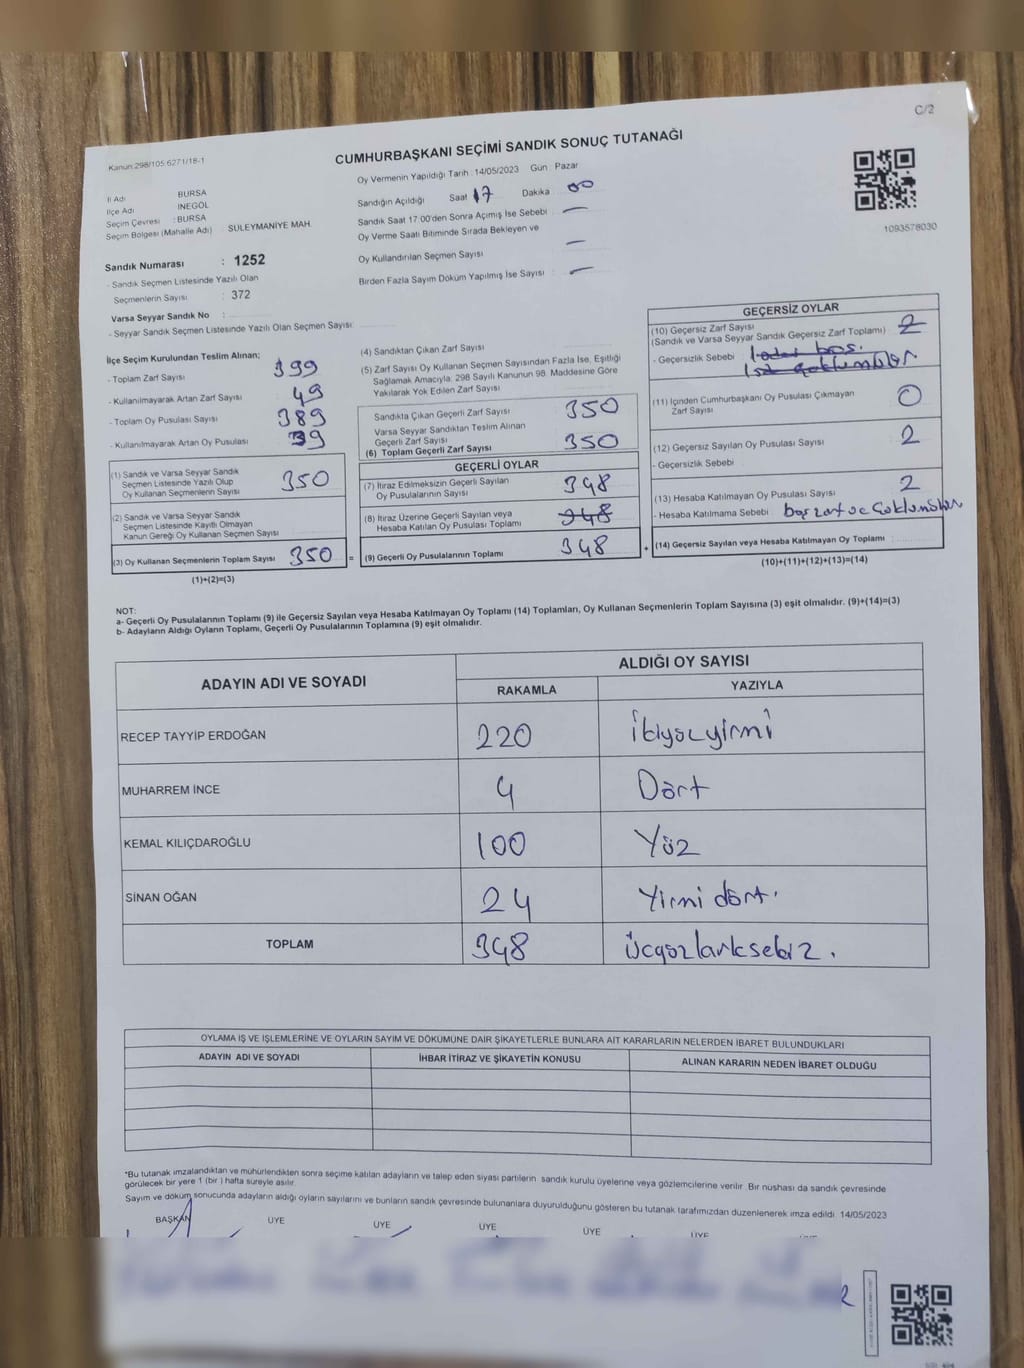 C/2
Kanun 298/105 6271/18-1
CUMHURBAŞKANI SEÇİMİ SANDIK SONUÇ TUTANAĞI
Oy Vermenin Yapıldığı Tarih : 14/05/2023 Gün : Pazar
İl Adı BURSA
İlçe Adı İNEGÖL
Seçim Çevresi : BURSA
Seçim Bölgesi (Mahalle Adı) SÜLEYMANİYE MAH.
Sandığın Açıldığı Saat 17 Dakika 00
Sandık Saat 17:00'den Sonra Açımış İse Sebebi —
Oy Verme Saati Bitiminde Sırada Bekleyen ve
Oy Kullandırılan Seçmen Sayısı —
Birden Fazla Sayım Döküm Yapılmış İse Sayısı : —
1093578030
Sandık Numarası : 1252
- Sandık Seçmen Listesinde Yazılı Olan
Seçmenlerin Sayısı : 372
Varsa Seyyar Sandık No :
- Seyyar Sandık Seçmen Listesinde Yazılı Olan Seçmen Sayısı:
İlçe Seçim Kurulundan Teslim Alınan;
- Toplam Zarf Sayısı 399
- Kullanılmayarak Artan Zarf Sayısı 49
- Toplam Oy Pusulası Sayısı 389
- Kullanılmayarak Artan Oy Pusulası 39
(1) Sandık ve Varsa Seyyar Sandık
Seçmen Listesinde Yazılı Olup
Oy Kullanan Seçmenlerin Sayısı 350
(2) Sandık ve Varsa Seyyar Sandık
Seçmen Listesinde Kayıtlı Olmayan
Kanun Gereği Oy Kullanan Seçmen Sayısı
(3) Oy Kullanan Seçmenlerin Toplam Sayısı 350 =
(1)+(2)=(3)
(4) Sandıktan Çıkan Zarf Sayısı
(5) Zarf Sayısı Oy Kullanan Seçmen Sayısından Fazla İse, Eşitliği
Sağlamak Amacıyla; 298 Sayılı Kanunun 98. Maddesine Göre
Yakılarak Yok Edilen Zarf Sayısı
Sandıkta Çıkan Geçerli Zarf Sayısı 350
Varsa Seyyar Sandıktan Teslim Alınan
Geçerli Zarf Sayısı
(6) Toplam Geçerli Zarf Sayısı 350
GEÇERLİ OYLAR
(7) İtiraz Edilmeksizin Geçerli Sayılan
Oy Pusulalarının Sayısı 348
(8) İtiraz Üzerine Geçerli Sayılan veya
Hesaba Katılan Oy Pusulası Toplamı 348
(9) Geçerli Oy Pusulalarının Toplamı 348 +
GEÇERSİZ OYLAR
(10) Geçersiz Zarf Sayısı
(Sandık ve Varsa Seyyar Sandık Geçersiz Zarf Toplamı) 2
- Geçersizlik Sebebi 1 adet boş.
(11) İçinden Cumhurbaşkanı Oy Pusulası Çıkmayan
Zarf Sayısı 0
(12) Geçersiz Sayılan Oy Pusulası Sayısı 2
- Geçersizlik Sebebi
(13) Hesaba Katılmayan Oy Pusulası Sayısı 2
- Hesaba Katılmama Sebebi :
(14) Geçersiz Sayılan veya Hesaba Katılmayan Oy Toplamı :
(10)+(11)+(12)+(13)=(14)
NOT:
a- Geçerli Oy Pusulalarının Toplamı (9) ile Geçersiz Sayılan veya Hesaba Katılmayan Oy Toplamı (14) Toplamları, Oy Kullanan Seçmenlerin Toplam Sayısına (3) eşit olmalıdır. (9)+(14)=(3)
b- Adayların Aldığı Oyların Toplamı, Geçerli Oy Pusulalarının Toplamına (9) eşit olmalıdır.
ADAYIN ADI VE SOYADI ALDIĞI OY SAYISI
RAKAMLA YAZIYLA
RECEP TAYYİP ERDOĞAN 220 ikiyüzyirmi
MUHARREM İNCE 4 Dört
KEMAL KILIÇDAROĞLU 100 Yüz
SİNAN OĞAN 24 Yirmi dört.
TOPLAM 348 üçyüzkırksekiz.
OYLAMA İŞ VE İŞLEMLERİNE VE OYLARIN SAYIM VE DÖKÜMÜNE DAİR ŞİKAYETLERLE BUNLARA AİT KARARLARIN NELERDEN İBARET BULUNDUKLARI
ADAYIN ADI VE SOYADI İHBAR İTİRAZ VE ŞİKAYETİN KONUSU ALINAN KARARIN NEDEN İBARET OLDUĞU
*Bu tutanak imzalandıktan ve mühürlendikten sonra seçime katılan adayların ve talep eden siyasi partilerin sandık kurulu üyelerine veya gözlemcilerine verilir. Bir nüshası da sandık çevresinde
görülecek bir yere 1 (bir ) hafta süreyle asılır.
Sayım ve döküm sonucunda adayların aldığı oyların sayılarını ve bunların sandık çevresinde bulunanlara duyurulduğunu gösteren bu tutanak tarafımızdan düzenlenerek imza edildi. 14/05/2023
BAŞKAN ÜYE ÜYE ÜYE ÜYE ÜYE